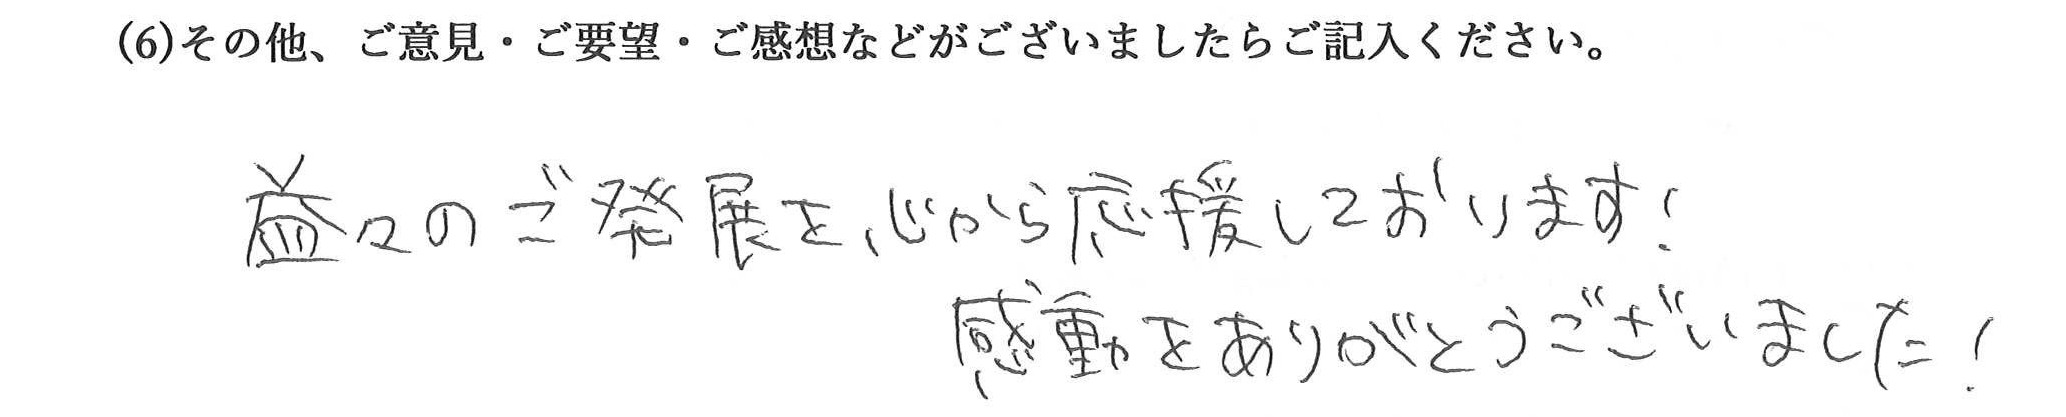 (6)その他、ご意見・ご要望・ご感想などがございましたらご記入ください。
益々のご発展を心から応援しております!
感動をありがとうございました!